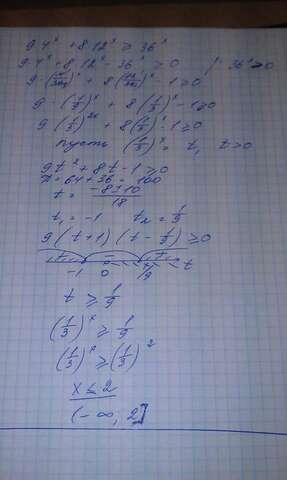 9·4ˣ + 8·12ˣ ≥ 36ˣ
9·4ˣ + 8·12ˣ - 36ˣ ≥ 0 /: 36ˣ > 0
9·(4/36)ˣ + 8(12/36)ˣ - 1 ≥ 0
9·(1/9)ˣ + 8(1/3)ˣ - 1 ≥ 0
9(1/3)²ˣ + 8(1/3)ˣ - 1 ≥ 0
пусть (1/3)ˣ = t, t > 0
9t² + 8t - 1 ≥ 0
D = 64 + 36 = 100
t = (-8±10)/18
t₁ = -1 t₂ = 1/9
9(t+1)(t - 1/9) ≥ 0
+ - +
-1 0 1/9 t
t ≥ 1/9
(1/3)ˣ ≥ 1/9
(1/3)ˣ ≥ (1/3)²
x ≤ 2
(-∞, 2]